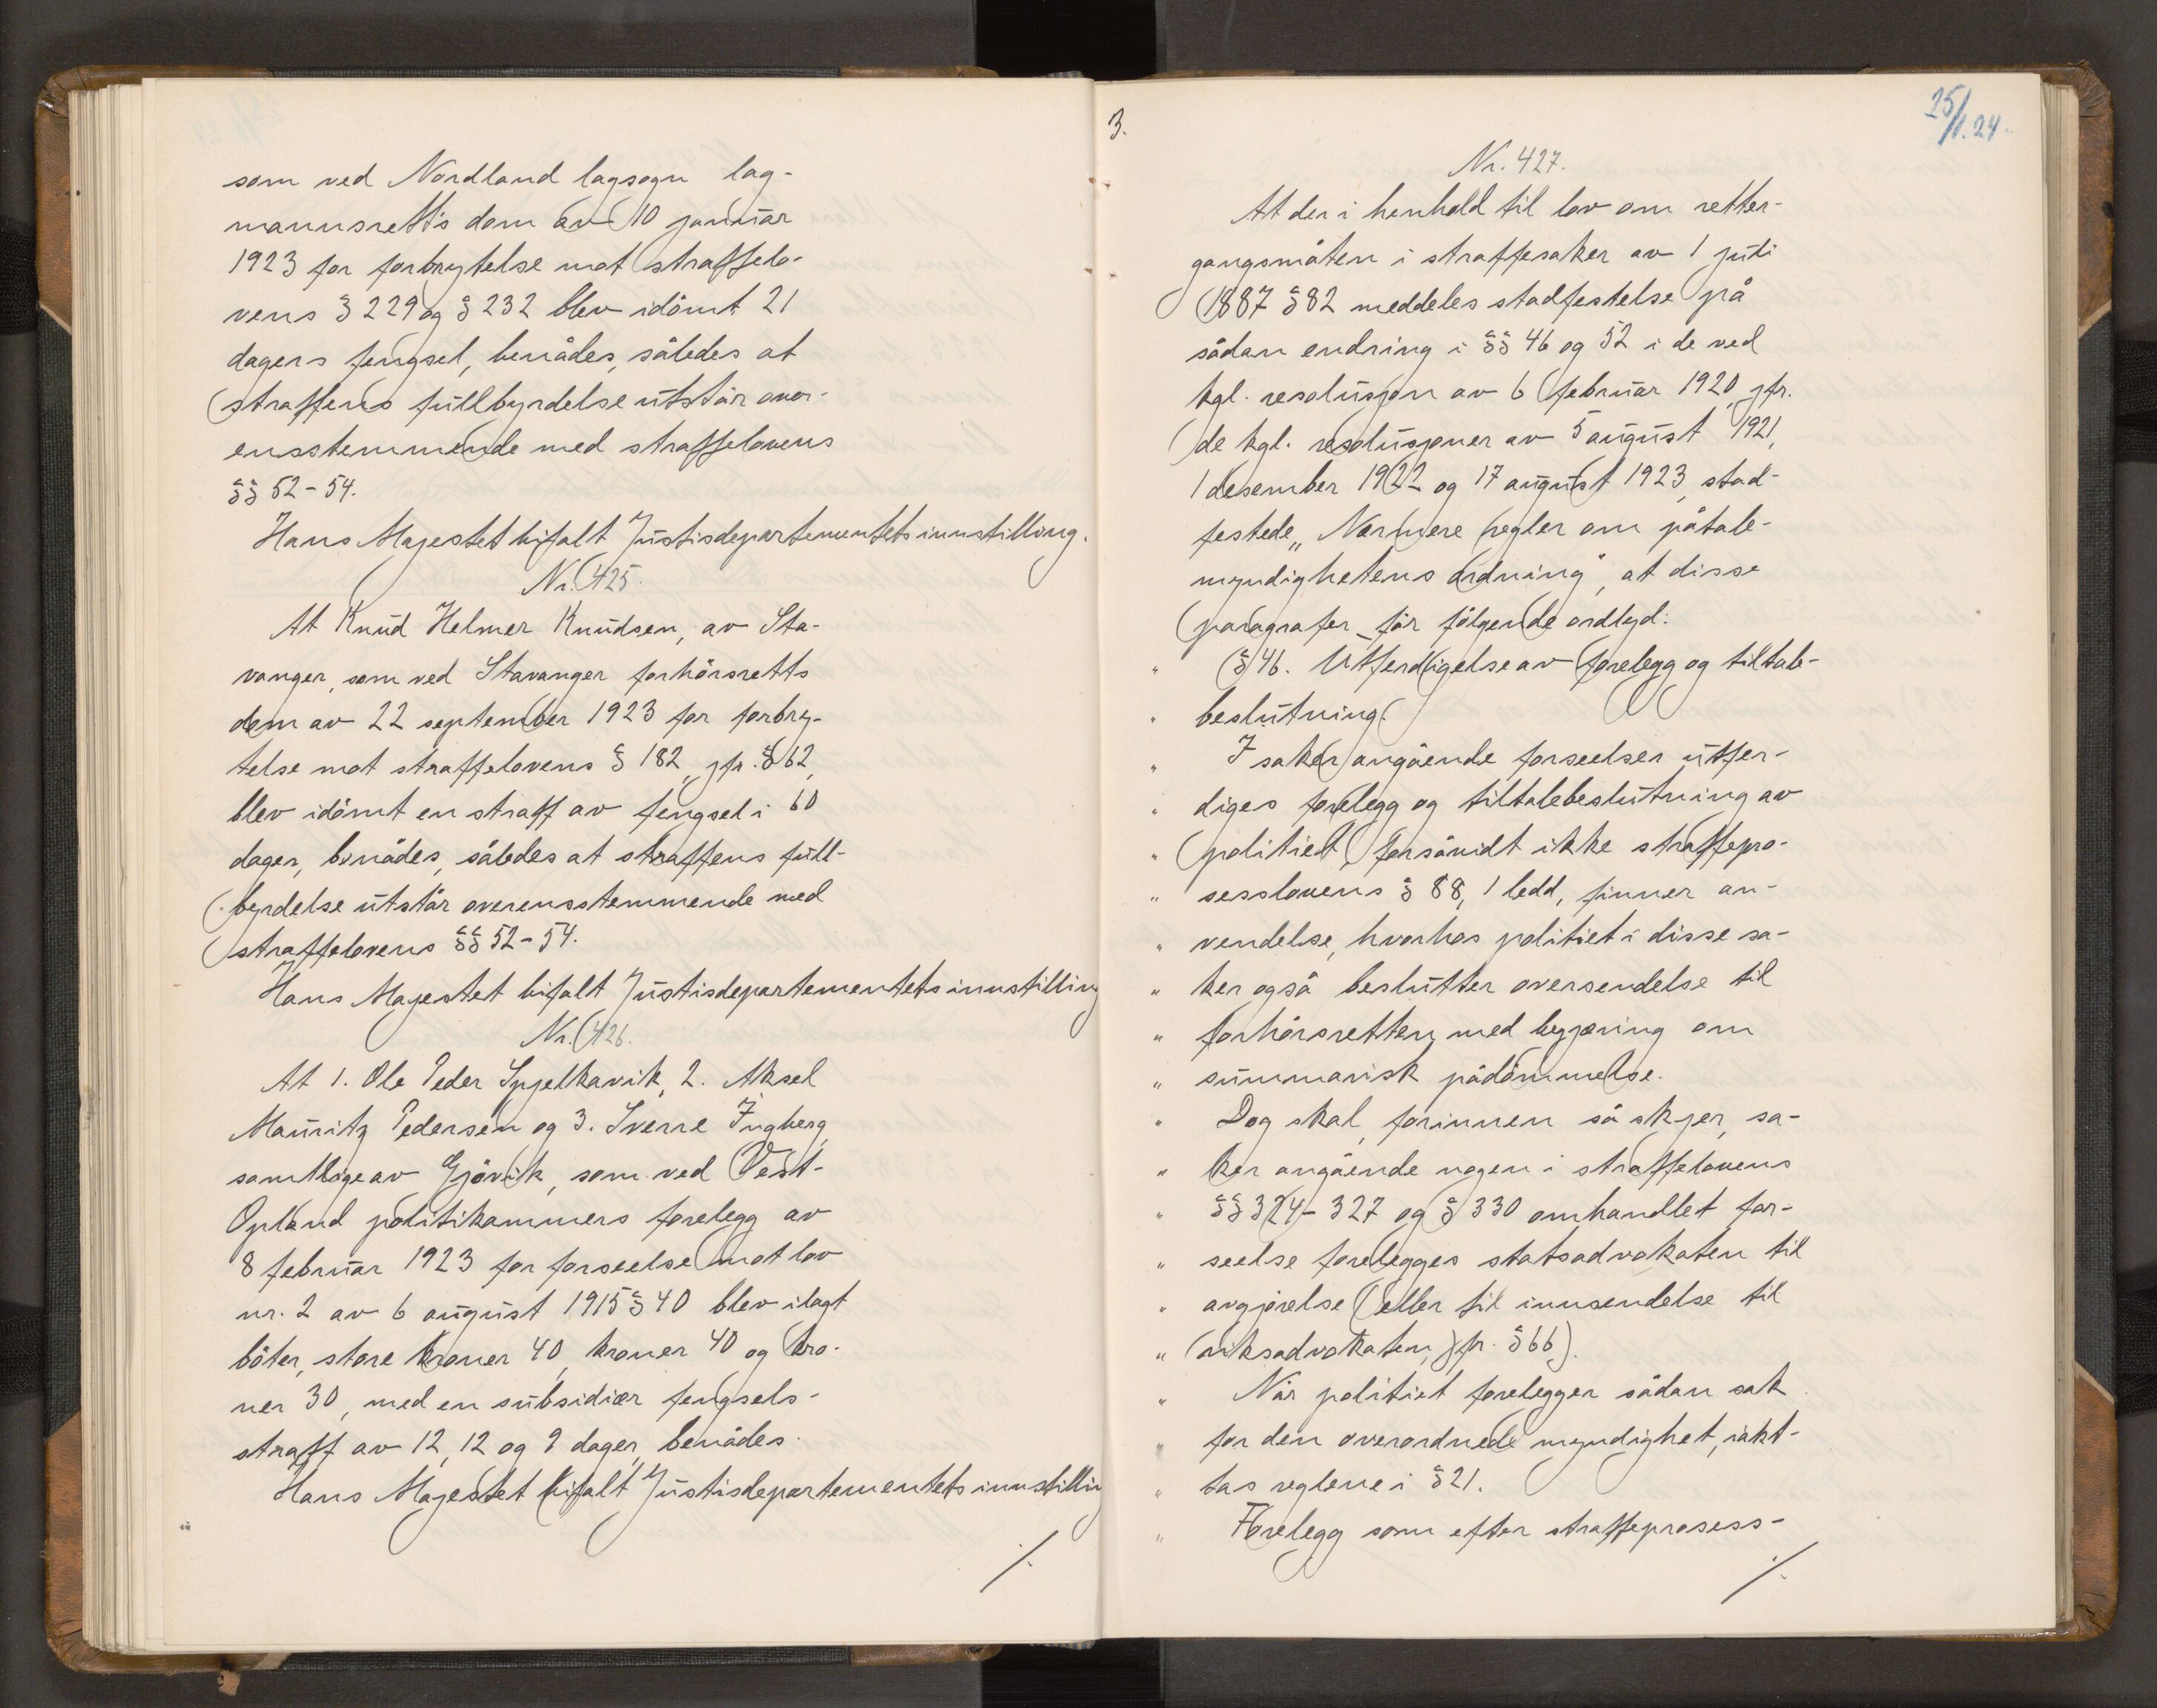 som ved Nordland lagsogn lag-
mannsrett's dom av 10 januar
1923 for forbrytelse mot straffelo-
vens § 229 og § 232 blev idömt 21
dagers fengsel, benådes, således at
straffens fullbyrdelse utstår over-
ensstemmende med straffelovens
§§ 52-54.
Hans Majestet bifalt Justisdepartementets innstilling.
Nr. 425.
At Knud Helmer Knudsen, av Sta-
vanger, som ved Stavanger forhörsretts
dom av 22 september 1923 for forbry-
telse mot straffelovens § 182, jfr. § 62,
blev idömt en straff av fengsel i 60
dager, benådes, således at straffens full-
byrdelse utstår overensstemmende med
straffelovens §§ 52-54.
Hans Majestet bifalt Justisdepartementets innstilling
Nr. 426.
At 1. Ole Peder Spjelkavik, 2. Aksel
Mauritz Pedersen og 3. Sverre Ingberg,
samtlige av Gjövik, som ved Vest-
Opland politikammers forelegg av
8 februar 1923 for forseelse mot lov
nr. 2 av 6 august 1915 § 40 blev ilagt
böter, store kroner 40, kroner 40 og kro-
ner 30, med en subsidiær fengsels-
straff av 12, 12 og 9 dager, benådes.
Hans Majestet bifalt Justisdepartementets innstilling
./.
3.
25/1.24.
Nr. 427.
At der i henhold til lov om retter-
gangsmåten i straffesaker av 1 juli
1887 § 82 meddeles stadfestelse på
sådan endring i §§ 46 og 52 i de ved
kgl. resolusjon av 6 februar 1920, jfr.
de kgl. resolusjoner av 5 august 1921,
1 desember 1922 og 17 august 1923, stad-
festede „Nærmere regler om påtale-
myndighetens ordning", at disse
paragrafer får fölgende ordlyd:
" § 46. Utferdigelse av forelegg og tiltale-
" beslutning.
" I saker angående forseelser utfer-
" diges forelegg og tiltalebeslutning av
" politiet, forsåvidt ikke straffepro-
" sesslovens § 88, 1 ledd, finner an-
" vendelse, hvorhos politiet i disse sa-
" ker også beslutter oversendelse til
" forhörsretten med begjæring om
" summarisk pådömmelse.
" Dog skal, forinnen så skjer, sa-
" ker angående nogen i straffelovens
" §§ 324-327 og § 330 omhandlet for-
" seelse forelegges statsadvokaten til
" avgjörelse (eller til innsendelse til
" riksadvokaten, jfr. § 66).
" Når politiet forelegger sådan sak
" for den overordnede myndighet, iakt-
" tas reglene i § 21.
" Forelegg som efter straffeprosess-
./.